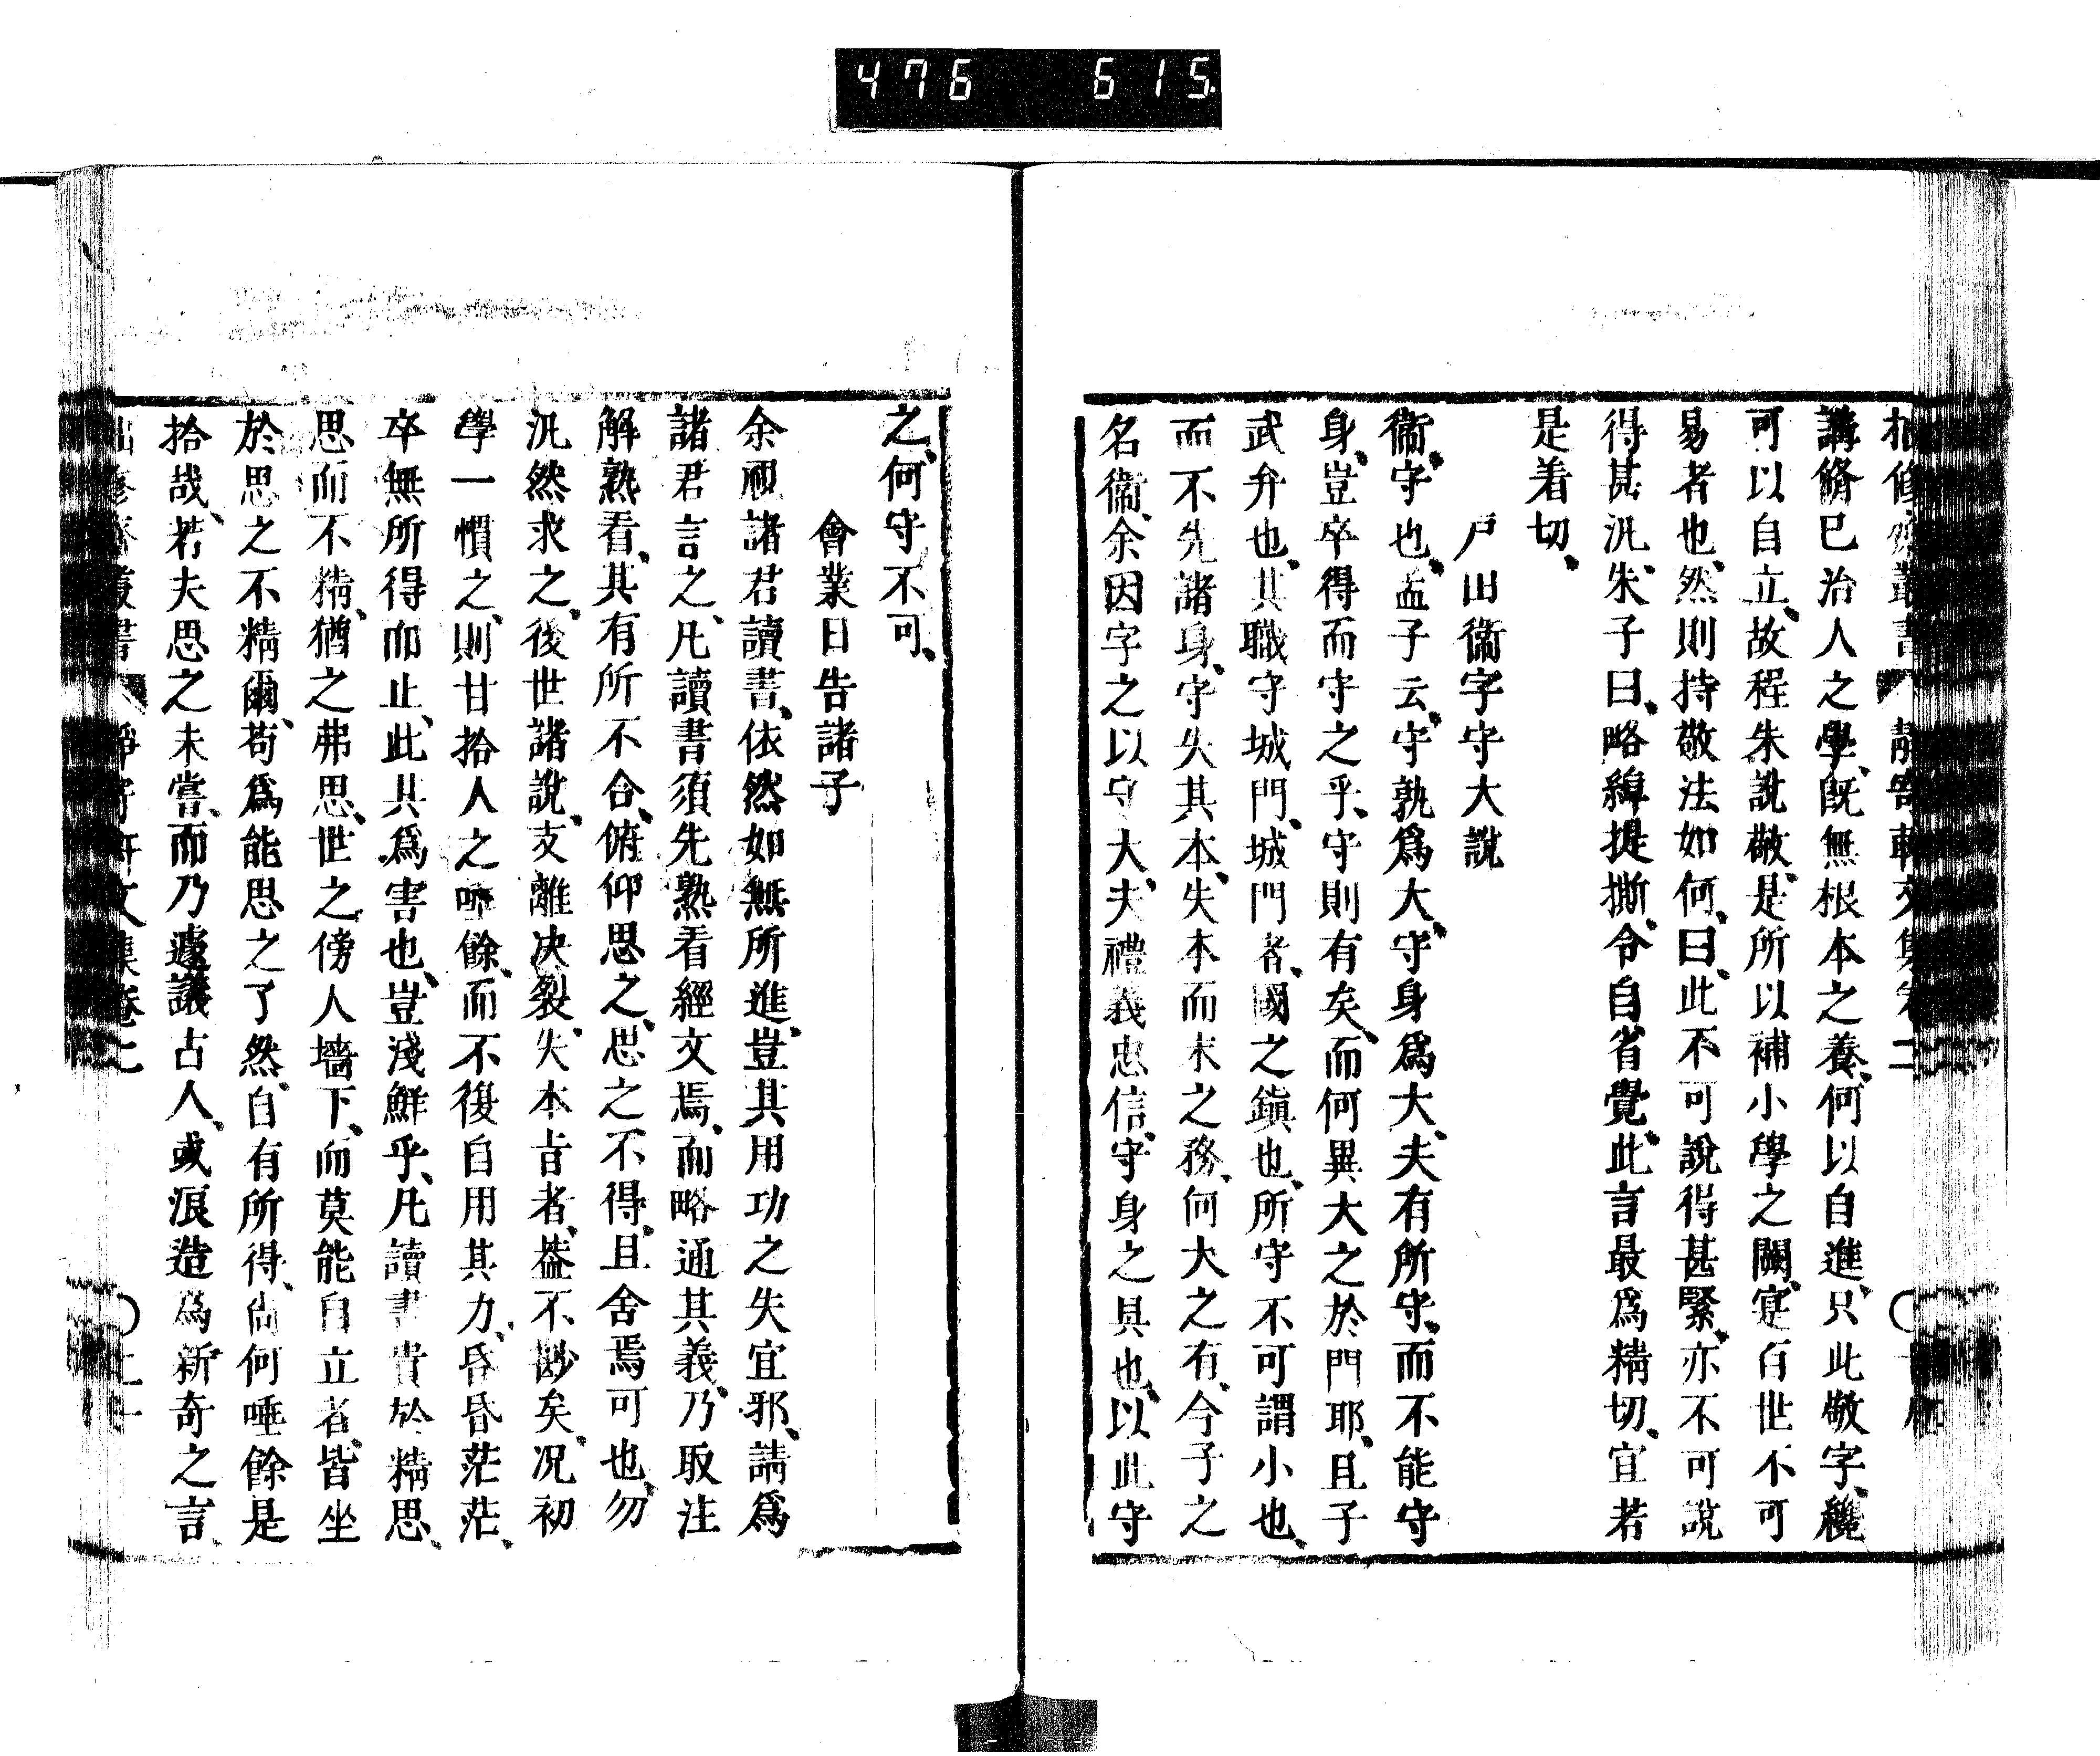 476 615
講脩已治人之學、既無根本之養、何以自進、只此敬字、纔
可以自立、故程朱說敬、是所以補小學之闕、寔百世不可
易者也、然則持敬法如何、曰、此不可說得甚緊、亦不可說
得甚汎、朱子曰、略綽提撕、令自省覺、此言最爲精切、宜若
是着切、
戸田衞字守大說
衞、守也、孟子云、守孰爲大、守身爲大、夫有所守、而不能守
身、豈卒得而守之乎、守則有矣、而何異大之於門耶、且子
武弁也、其職守城門、城門者、國之鎮也、所守不可謂小也、
而不先諸身、守失其本、失本而末之務、何大之有、今子之
名衞、余因字之以守大、夫禮義忠信、守身之具也、以此守
之、何守不可、
會業日告諸子
余視諸君讀書、依然如無所進、豈其用功之失宜邪、請爲
諸君言之、凡讀書須先熟看經文焉、而略通其義、乃取注
解熟看、其有所不合、俯仰思之、思之不得、且舍焉可也、勿
汎然求之、後世諸說、支離决裂、失本旨者、葢不尠矣、况初
學一慣之、則甘拾人之唾餘、而不復自用其力、昏昏茫茫、
卒無所得而止、此其爲害也、豈淺鮮乎、凡讀書貴於精思、
思而不精、猶之弗思、世之傍人墻下、而莫能自立者、皆坐
於思之不精爾、苟爲能思之了然、自有所得、尚何唾餘是
拾哉、若夫思之未嘗、而乃遽議古人、或浪造為新奇之言、